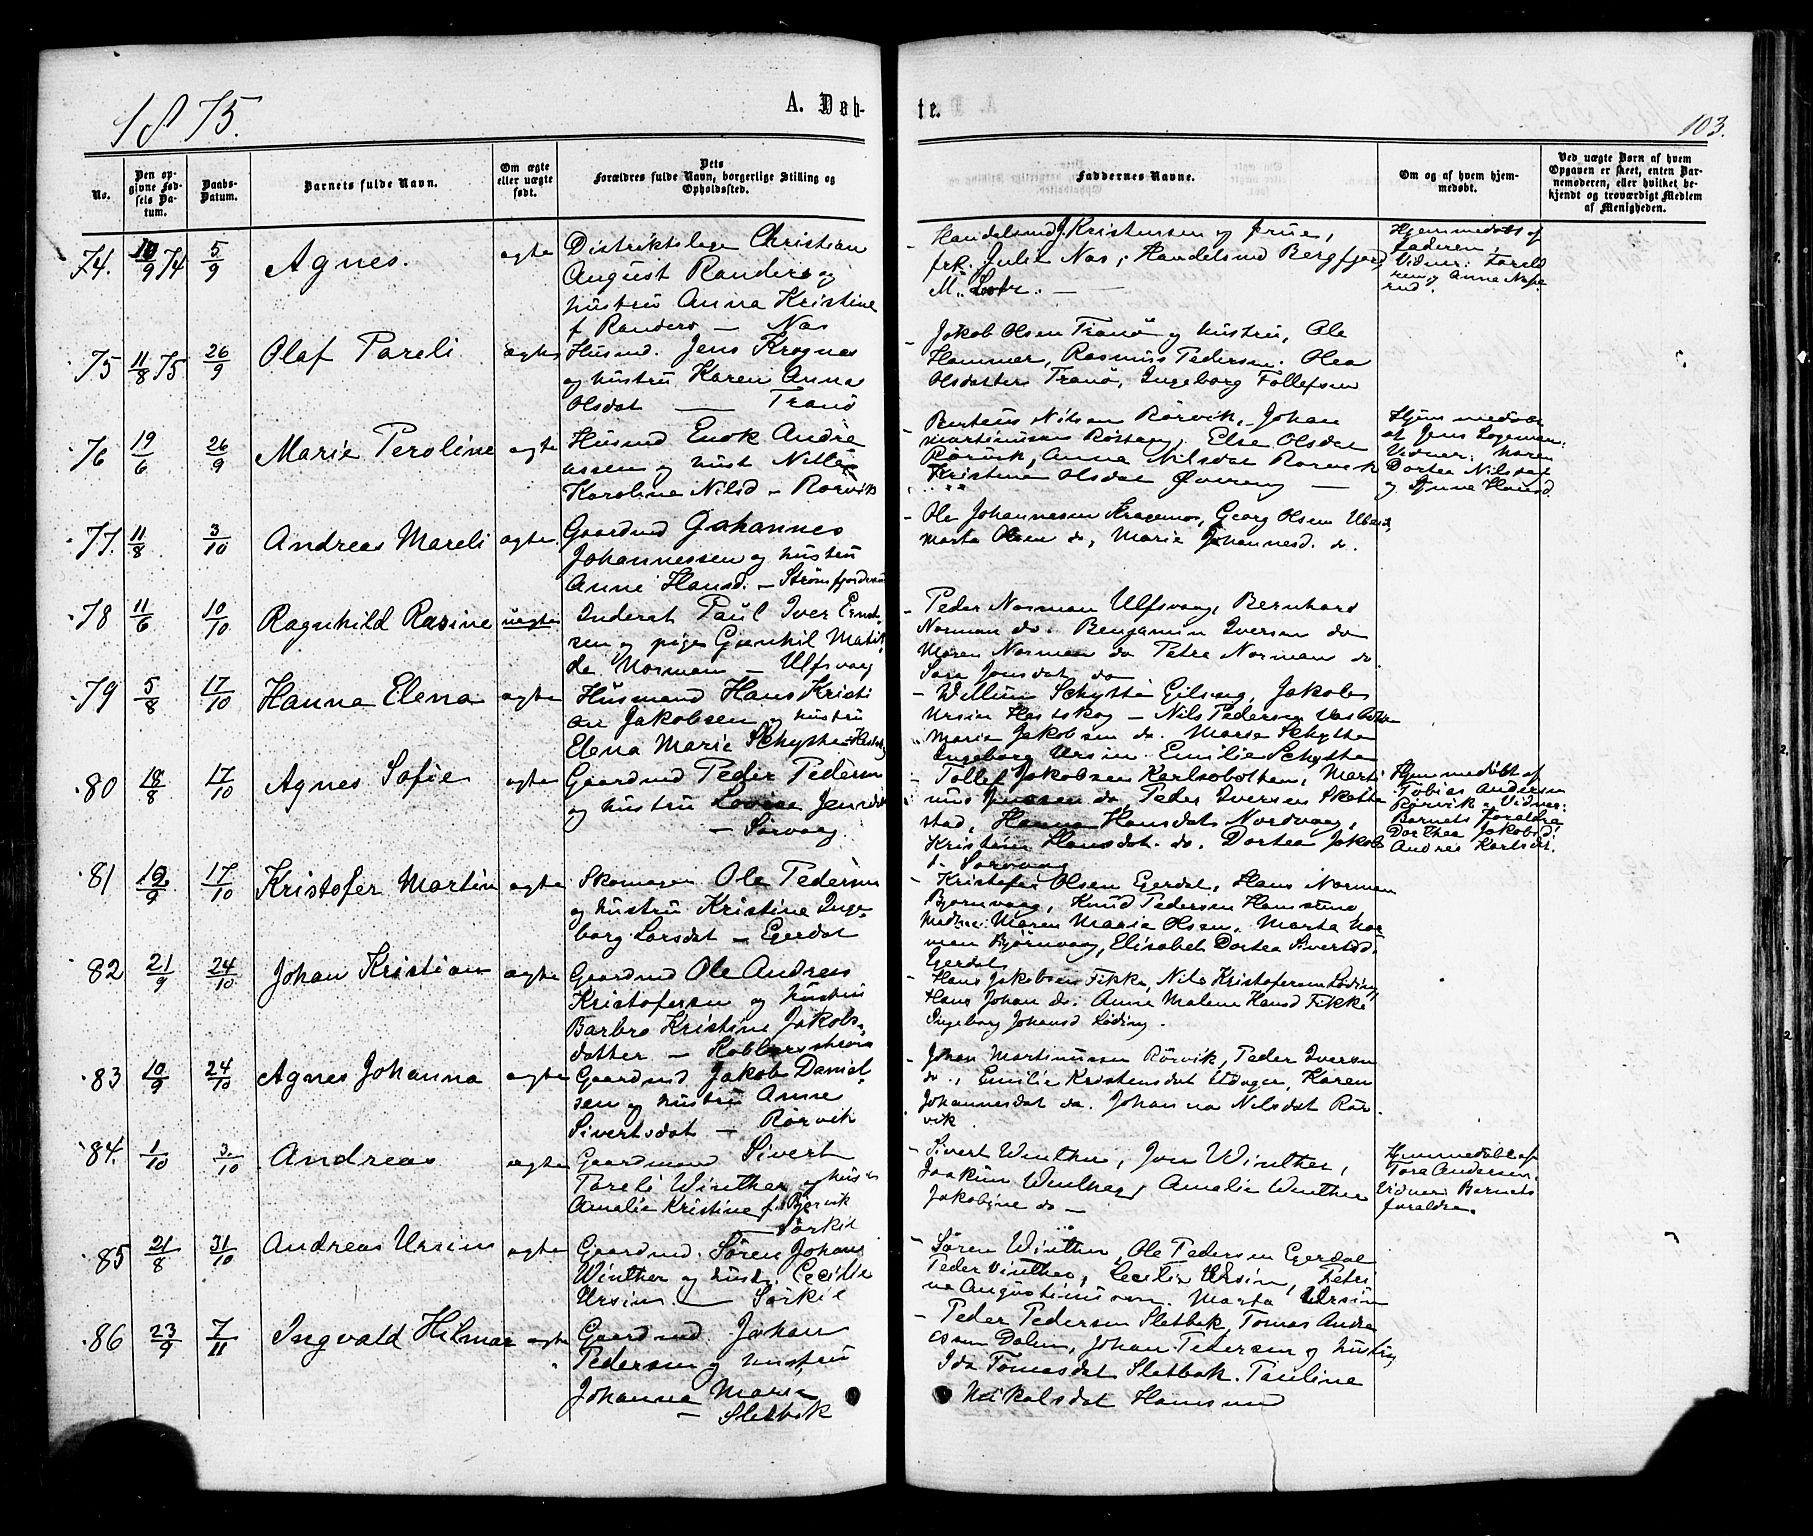 1875.
A. Døb-
te.
103.
No.
Den op-
givne Fød-
sels Da-
tum.
Daabs-
Datum.
Barnets fulde Navn.
Om ægte
eller uægte
født.
Dets
Forældres fulde Navn, borgerlige Stilling og
Opholdssted.
Faddernes Navne.
Om og af hvem hjem-
medøbt.
Ved uægte Børn af hvem
Opgaven er skeet, enten Bar-
nemoderen, eller hvilket be-
kjendt og troværdigt Medlem
af Menigheden.
74. 10/9 74 5/9 Agnes. ægte
Distriktslæge Christian
August Randers og
hustru Anna Kristine
f. Randers — Nas
Handelsmd J. Kristensen og frue,
frk. Julie Nas, Handelsmd Bergfjord
Hjemmedøbt af
faderen,
Vidner:
75 11/8 75 26/9 Olaf Pareli ægte
Husmd. Jens Krognes
og hustru Karen Anna
Olsdat — Tranø
Jakob Olsen Tranö og hustru, Ole
Hammer, Rasmus Pedersen. Olea
Olsdatter Tranö, Ingeborg Tollefsen
76 19/6 26/9 Marie Peroline ægte
Husmd Enok Andre
assen og hust
Karoline Nilsd — Rørvik
Berteus Nilsen Rörvik, Johan
Martinusen Else Olsdat
Rörvik, Anna Nilsdat Rorvik
Kristine Olsdat
Hjemmedøbt
af Jens
Vidner: Maren
Dortea Nilsdat
og Hansd.
77. 11/8 3/10 Andreas Mareli ægte.
Gaardmd Johannes
Johannessen og hustru
Anne Hansd. — Strømfjord
Ole Johannesen Georg Olsen
Marta Olsen do, Marie Johannesd. do.
78 11/6 10/10 Ragnhild Rasine uægte
Inderst Paul Iver
sen og pige Gunhil Matil
de Norman — Ulfsvaag
Peder Norman Ulfsvaag, Bernhard
Norman do. Benjamin Iversen do
Maren Norman do Petra Norman do
Sara Jonsdat do
79 5/8 17/10 Hanna Elena ægte
Husmand Hans Kristi
an Jakobsen og hustru
Elena Marie Schytte
Willum Schytte Jakob
Ursin Hestskog — Nils Pedersen
Maria Jakobsen do. Marse Schytte
Ingeborg Ursin. Emilie Schytte
80 18/8 17/10 Agnes Sofie ægte
Gaardmd Peder Pedersen
og hustru Lovise
— Sørvaag
Tollef Jakobsen Karlsobotten, Marti
nus Jenssen do, Peder Iversen
stad, Hanna Hansdat Nordvaag,
Kristine Hansdat. do. Dortea Jakob
d. Sorvaag
Hjemmedøbt af
Tobias Andersen
Rørvik. Vidner:
Barnets Foraldre
Dorthea Jakobsd
Andrea
81 19/9 17/10 Kristofer Martin ægte
Skomager Ole Pedersen
og hustru Kristine Inge-
borg Larsdat — Egerdal
Kristofer Olsen Egerdal, Hans Norman
Bjørnvaag, Knud Pedersen Hamsund
Maren Marie Olsen. Marta Nor
man Bjørnvaag, Elisabet Dortea Sivertsd.
Egerdal
82 21/9 24/10 Johan Kristian ægte
Gaardmd Ole Andreas
Kristofersen og hustru
Barbro Kristine Jakobs-
datter —
Hans Jakobsen Fikke, Nils Kristofersen Löding,
Hans Johan do. Anne Malene Hansd Fikke
Ingeborg Johansd Löding.
83 10/9 24/10 Agnes Johanna ægte
Gaardmd. Jakob Daniel
sen og hustru Anne
Sivertsdat — Rørvik
Johan Martinussen Rörvik, Peder Iversen
do., Emilie Kristensdat Karen
Johannesdat do. Johanna Nilsdat Rör
vik.
84. 1/10 3/10 Andreas ægte
Gaardmand Sivert
Pareli Winther og hustru
Amalie Kristine f. Bjervik
— Sørkil
Sivert Winther, Jon Winther,
Joakim Winther, Amalie Winther
Jakobine do —
Hjemmedøbt af
Tora Andersen.
Vidner: Barnets
foraldre.
85 21/8 31/10 Andreas Ursin ægte
Gaardmd. Søren Johans
Winther og hust. Cecilie
Ursin. — Sørkil
Søren Winther, Ole Pedersen Egerdal
Peder Vinther, Cecilie Ursin, Petri
ne Augustinussen. Marta Ursin
86 23/9 7/11 Ingvald Hilmar ægte
Gaardmd Johan
Pedersen og hustru
Johanna Marie
— Sletbak
Peder Pedersen Sletbak, Tomas Andre
assen Dalen, Johan Pedersen og hustru,
Ida Tomasdat Sletbak. Pauline
Nikolsdat Hamsund